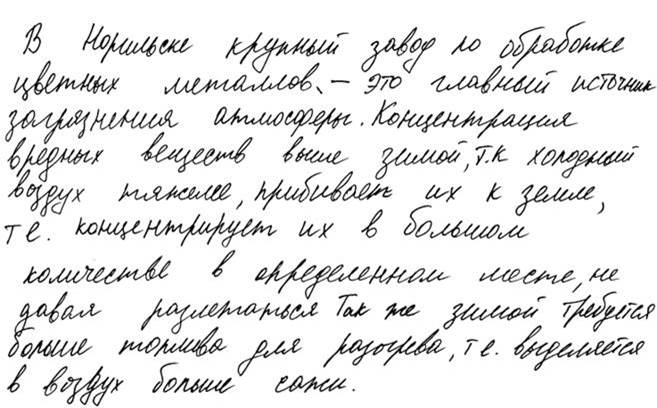 В Норильске крупный завод по обработке
цветных металлов, – это главный источник
загрязнения атмосферы. Концентрация
вредных веществ выше зимой, т.к холодный
воздух тяжелее, прибивает их к земле,
т е. концентрирует их в большом
количестве в определенном месте, не
давая разлетаться Так же зимой требуется
больше топлива для разогрева, т е. выделяется
в воздух больше сажи.